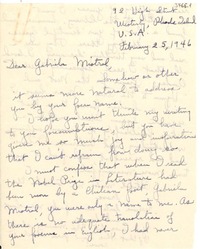 92 High Street
Westerly, Rhode Island
U.S.A.
February 25, 1946
Dear Gabriela Mistral,
Somehow or other
it seems more natural to address
you by your pen name.
I hope you won't think my writing
to you presumptuous, but you have
given me so much joy and inspiration
that I can't refrain from doing so.
I must confess that when I read
the Nobel Prize in Literature had
been won by a Chilean Poet, Gabriela
Mistral, you were only a name to me. As
there is no adequate translation of
your poems in English, I had never